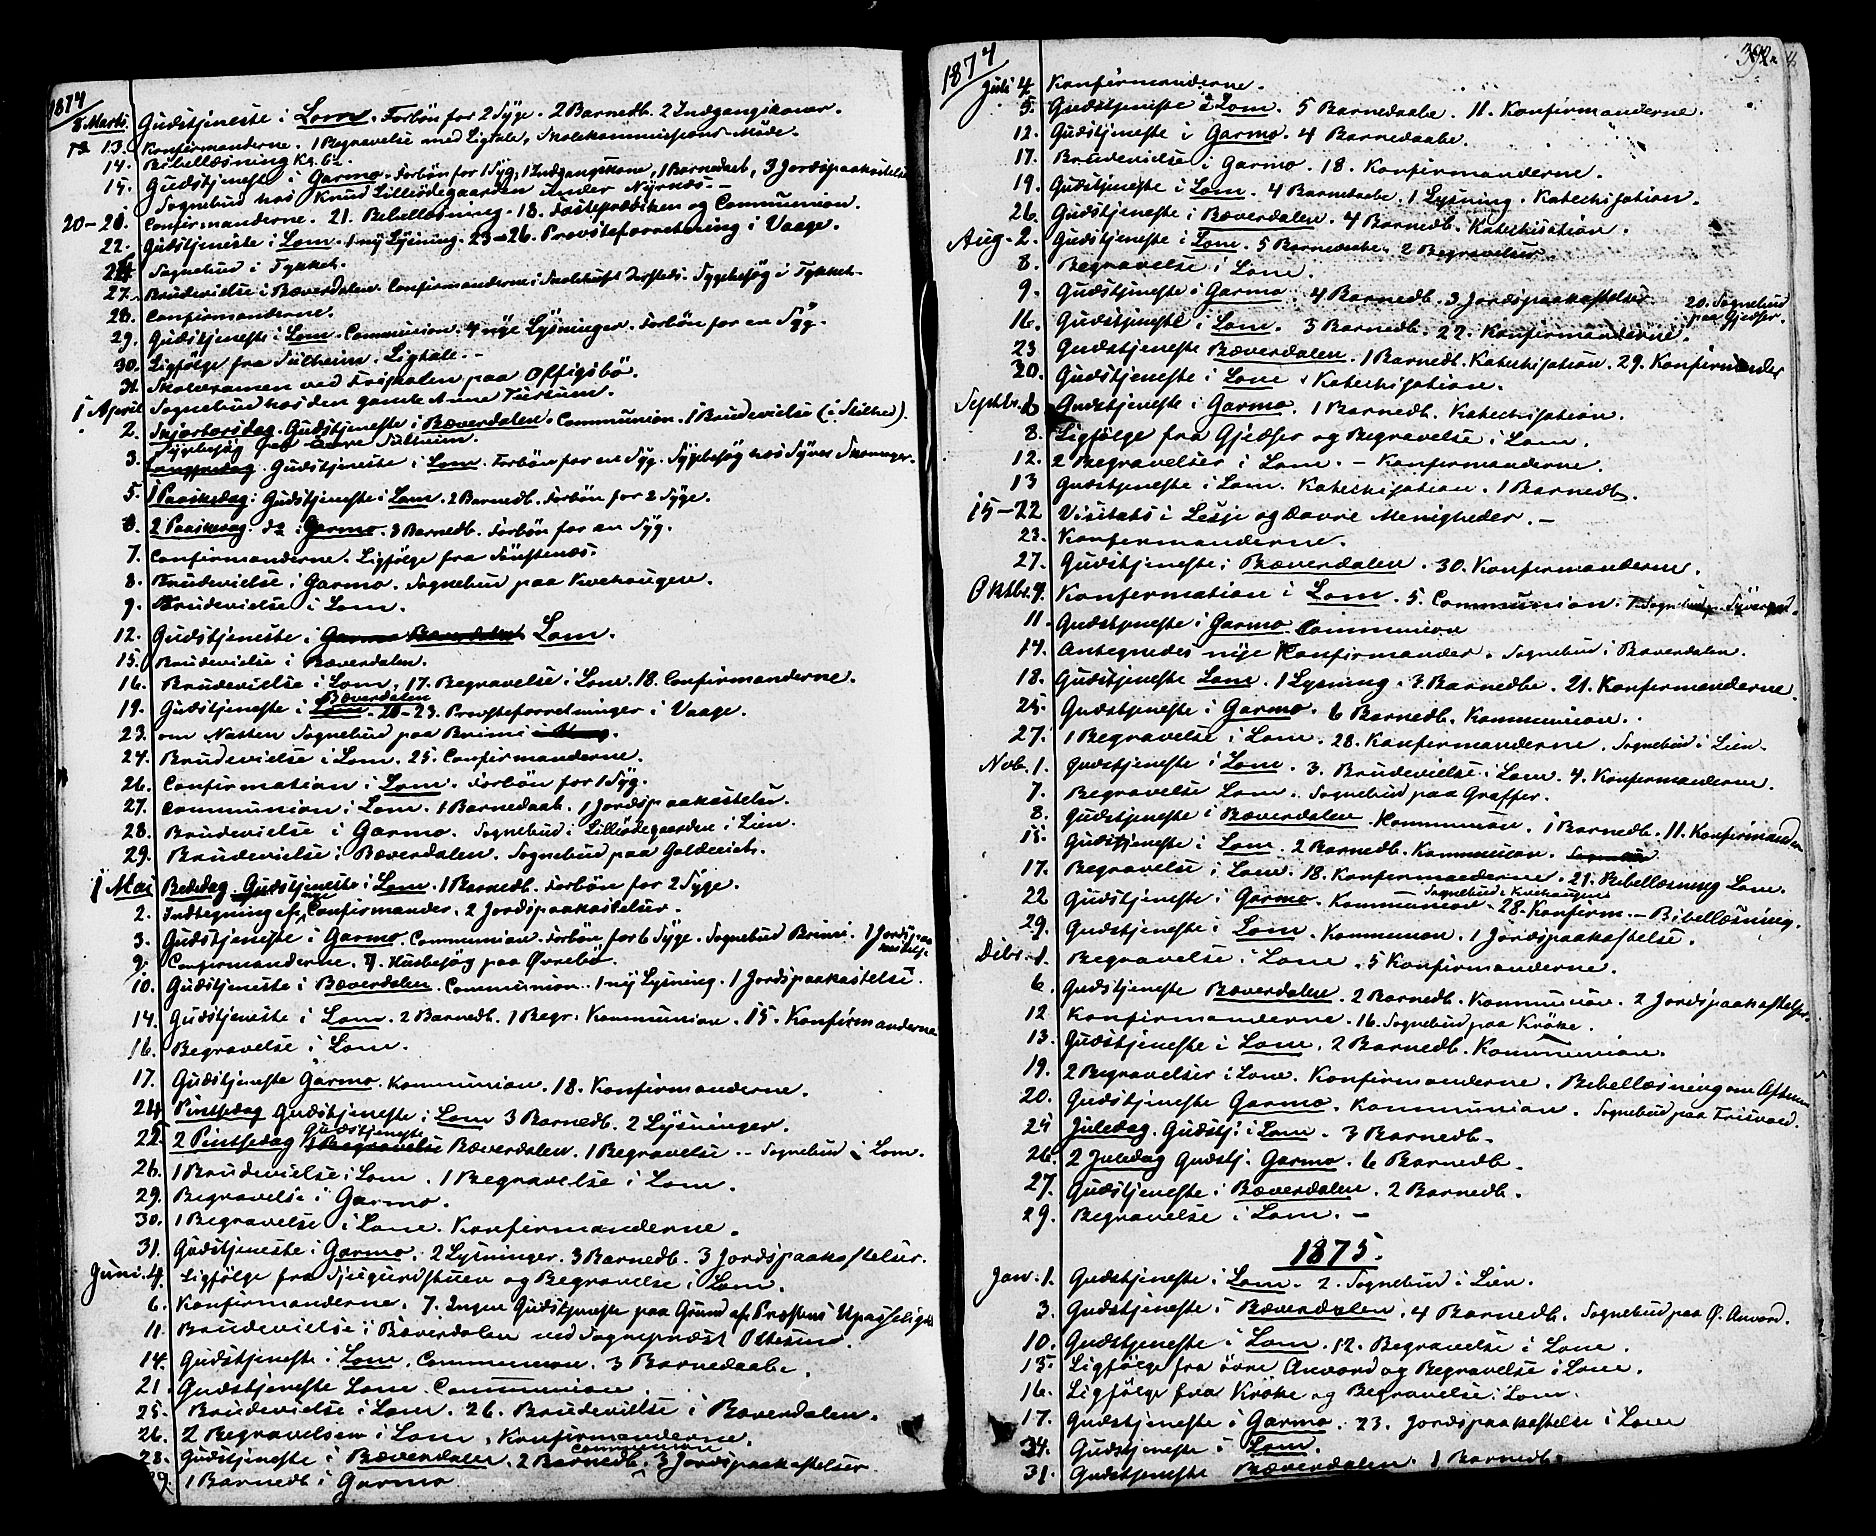 1874
8 Marts. Gudstjeneste i Lom. Forbön for 2 Syge. 2 Barnedb. 2 Indgangskoner.
13. Konfirmanderne. 1 Begravelse med Ligtale, Skolekommissions Möde.
14. Bibellæsning Kl. 6.
15. Gudstjeneste i Garmo. Forbön for 1 Syg, 1 Indgangskone, 1 Barnedaab, 3 Jordspaakastelse
Sognebud hos Knud Lillödegaarden under Nyrnæs.
20-20. Confirmanderne. 21. Bibellæsning. 18. Fasteprædiken og Communion.
22. Gudstjeneste i Lom. 1 ny Lysning. 23-26. Provsteforretning i Vaage.
Sognebud i Tykket.
27. Brudevielse i Bæverdalen. Confirmanderne i Skolehuset. Sygebesög i Tykket.
28. Confirmanderne.
29. Gudstjeneste i Lom. Communion. 4 nye Lysninger. Forbön for en Syg.
30. Ligfölge fra Sulheim. Ligtale. -
31. Skoleexamen ved Friskolen paa Offigsbö.
1 April Sognebud hos den gamle Anne
2. Skjærtorsdag. Gudstjeneste i Bæverdalen. Communion. 1 Brudevielse
Sygebesög Sulheim.
3. Langfredag. Gudstjeneste i Lom. Forbön for en Syg. Sygebesög hos
5. 1 Paaskedag: Gudstjeneste i Lom. 2 Barnedb. Forbön for 2 Syge.
6. 2 Paaskedag. do i Garmo. 3 Barnedb. Forbön for en Syg.
7. Confirmanderne. Ligfölge fra
8. Brudevielse i Garmo. Sognebud paa Kvehaugen.
9. Brudevielse i Lom.
12. Gudstjeneste i Garmo Bæverdalen Lom.
15. Brudevielse i Bæverdalen.
16. Brudevielse i Lom, 17. Begravelse i Lom. 18. Confirmanderne.
Bæverdalen
19. Gudstjeneste i Lom. 20-23. Provsteforretninger i Vaage.
23. om Natten Sognebud paa Brimi
24. Brudevielse i Lom. 25. Confirmanderne.
26. Confirmation i Lom. Forbön for 1 Syg.
27. Communion i Lom. 1 Barnedaab. 1 Jordspaakastelse.
28. Brudevielse i Garmo. Sognebud i Lillödegaarden i Lien.
29. Brudevielse i Bæverdalen. Sognebud paa
1 Mai Bededag. Gudstjeneste i Lom. 1 Barnedb. Forbön for 2 Syge.
nye
2. Indtegning af Confirmander. 2 Jordspaakastelser.
3. Gudstjeneste i Garmo. Communion. Forbön for 6 Syge. Sognebud Brimi. 1 Jordspaakastelse
9. Confirmanderne. 7. Husbesög paa Øvrebø.
10. Gudstjeneste i Bæverdalen. Communion. 1 ny Lysning. 1 Jordspaakastelse.
14. Gudstjeneste i Lom. 2 Barnedb. 1 Begr. Kommunion. 15. Konfirmanderne
16. Begravelse i Lom.
17. Gudstjeneste Garmo. Kommunion. 18. Konfirmanderne.
24. Pintsedag Gudstjeneste i Lom 3 Barnedb. 2 Lysninger.
Gudstjeneste
25. 2 Pintsedag 1 Begravelse Bæverdalen. 1 Begravelse - Sognebud i Lom.
26. 1 Brudevielse i Lom. 1 Begravelse i Lom.
29. Begravelse i Garmo.
30. 1 Begravelse i Lom. Konfirmanderne.
31. Gudstjeneste i Garmo. 2 Lysninger. 3 Barnedb. 3 Jordspaakastelser.
Juni. 4. Ligfölge fra og Begravelse i Lom.
6. Konfirmanderne. 7. Ingen Gudstjeneste paa Grund af Præstens Upasselighed
11. Brudevielse i Bæverdalen ved Sognepræst Ottesen.
14. Gudstjeneste i Lom. Communion. 3 Barnedaabe.
21. Gudstjeneste Lom. Communion.
25. Brudevielse i Lom. 26. Brudevielse i Bæverdalen.
26. 2 Begravelser i Lom, Konfirmanderne.
Communion
28. Gudstjeneste i Bæverdalen. 2 Barnedb. 3 Jordspaakastelser.
29. 1 Barnedb i Garmo
1874
Juli 4. Konfirmanderne.
5. Gudstjeneste i Lom. 5 Barnedaabe. 11. Konfirmanderne.
12. Gudstjeneste i Garmo. 4 Barnedaabe.
17. Brudevielse i Garmo. 18. Konfirmanderne.
19. Gudstjeneste i Lom. 4 Barnedaabe. 1 Lysning. Katechisation.
26. Gudstjeneste i Bæverdalen. 4 Barnedb. Katechisation.
Aug. 2. Gudstjeneste i Lom. 5 Barnedaabe. 2 Begravelser.
8. Begravelse i Lom.
9. Gudstjeneste i Garmo. 4 Barnedb. 3 Jordspaakastelser 20. Sognebud
16. Gudstjeneste i Lom. 3 Barnedb. 22. Konfirmanderne. paa Gjedser.
23 Gudstjeneste Bæverdalen. 1 Barnedb. Katechisation. 29. Konfirmander
30. Gudstjeneste i Lom. Katechisation.
Septbr. 6 Gudstjeneste i Garmo. 1 Barnedb. Katechisation.
8. Ligfölge fra Gjedser og Begravelse i Lom.
12. 2 Begravelser i Lom. - Konfirmanderne.
13 Gudstjeneste i Lom. Katechisation. 1 Barnedb.
15-22 Visitats i Lesje og Dovre Menigheder. -
23. Konfirmanderne.
27. Gudstjeneste i Bæverdalen. 30. Konfirmanderne.
Oktbr. 4. Konfirmation i Lom. 5. Communion. 7. Sognebud
11. Gudstjeneste i Garmo. Communion
17. Antegnedes nye Konfirmander. Sognebud i Bæverdalen.
18. Gudstjeneste Lom. 1 Lysning. 3 Barnedbe. 21. Konfirmanderne.
25. Gudstjeneste i Garmo. 6 Barnedb. Kommunion.
27. 1 Begravelse i Lom. 28. Konfirmanderne. Sognebud i Lien.
Novb. 1. Gudstjeneste i Lom. 3. Brudevielse i Lom. 4. Konfirmanderne.
7. Begravelse Lom. Sognebud paa Graffer.
8. Gudstjeneste i Bæverdalen. Kommunion. 1 Barnedb. 11. Konfirmand
15. Gudstjeneste i Lom. 2 Barnedb. Kommunion.
17. Begravelse i Lom. 18. Konfirmanderne. 21. Bibellæsning Lom.
Sognebud i Kvehaugen
22 Gudstjeneste i Garmo. Kommunion. 28. Konfirm. - Bibellæsning.
29. Gudstjeneste i Lom. Kommunion. 1 Jordspaakastelse.
Decbr. 1. Begravelse i Lom. 5 Konfirmanderne.
6. Gudstjeneste Bæverdalen. 2 Barnedb. Kommunion. 2 Jordspaakastelser.
12 Konfirmanderne. 16. Sognebud paa Kröke.
13. Gudstjeneste i Lom. 2 Barnedb. Kommunion.
19. 2 Begravelser i Lom. Konfirmanderne. Bibellæsning om Aftenen
20. Gudstjeneste Garmo. Kommunion. Sognebud paa Frisvold.
25 Juledag. Gudstj. i Lom. 3 Barnedb.
26. 2 Juledag Gudstj. Garmo. 6 Barnedb.
27. Gudstjeneste i Bæverdalen. 2 Barnedb.
29. Begravelse i Lom. -
1875.
Jan. 1. Gudstjeneste i Lom. 2. Sognebud i Lien.
3. Gudstjeneste i Bæverdalen. 4 Barnedb. Sognebud paa Ø. Anvord.
10. Gudstjeneste i Lom. 12. Begravelse i Lom.
15. Ligfölge fra övre Anvord og Begravelse i Lom.
16. Ligfölge fra Kröke og Begravelse i Lom.
17. Gudstjeneste i Garmo. 23. Jordspaakastelse i Lom
24. Gudstjeneste i Lom.
31. Gudstjeneste Bæverdalen. 1 Barnedb.